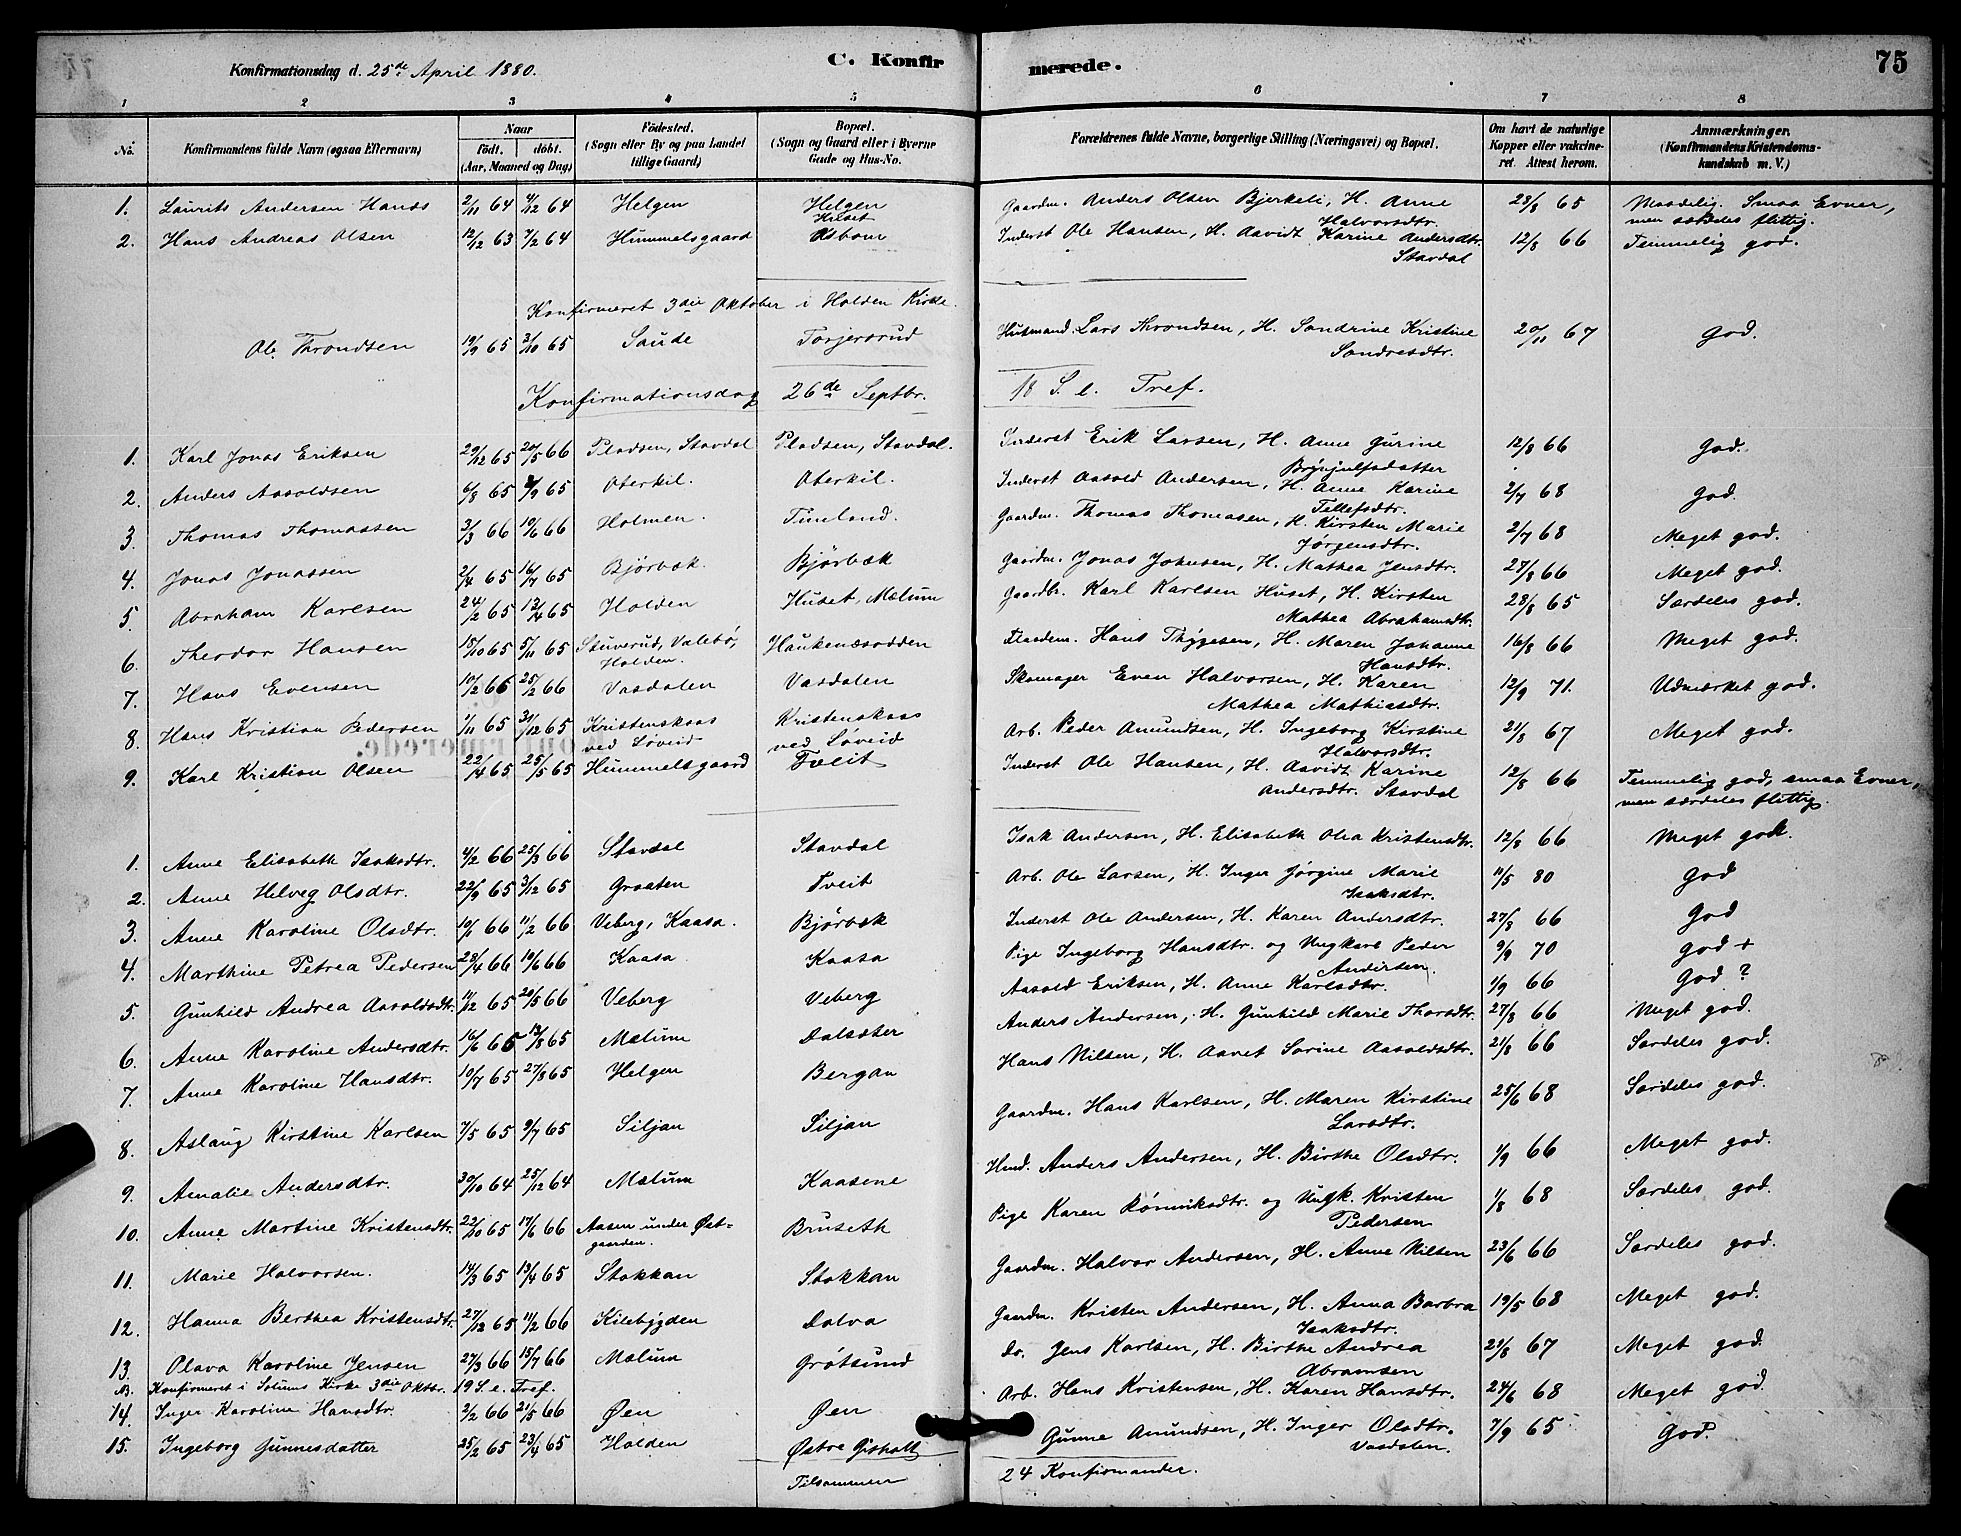 Konfirmationsdag d. 25de April 1880. C. Konfirmerede. 75
1 2 3 4 5 6 7 8
No. Konfirmandens fulde Navn (ogsaa Efternavn) Naar født. døbt. (Aar, Maaned og Dag) Födested. (Sogn eller By og paa Landet tillige Gaard) Bopæl. (Sogn og Gaard eller i Byerne Gade og Hus-No. Forældrenes fulde Navne, borgerlige Stilling (Næringsvei) og Bopæl. Om havt de naturlige Kopper eller vakcineret. Attest herom. Anmærkninger. (Konfirmandens Kristendomskundskab m. V.)
1. Laurits Andersen Hands 2/11 64 4/12 64 Helgen Helgen Gaardm. Anders Olsen Bjerkeli, H. Anne Halvorsdtr. 23/8 65 Maadelig. Smaa Evner, men særdeles flittig.
2. Hans Andreas Olsen 12/12 63 7/2 64 Hummelsgaard Aasbom Inderst Ole Hansen, H. Aavidt Karine Andersdtr. Stavdal 12/8 66 Temmelig god.
Konfirmeret 3die Oktober i Holden Kirke.
Ole Throndsen 19/9 65 3/10 65 Saude Torjersrud Husmand. Lars Throndsen, H. Sandrine Kristine Sondresdtr. 20/11 67 God.
Konfirmationsdag 26de Septbr. 18 S. e. Tref.
1. Karl Jonas Eriksen 29/12 65 20/5 66 Pladsen, Stavdal Pladsen, Stavdal. Inderst Erik Larsen, H. Anne Gurine Brynjulfsdatter 12/8 66 God.
2. Anders Aasoldsen 6/8 65 8/9 65 Oterkil. Oterkil. Inderst Aasold Andersen, H. Anne Karine Tellefsdtr. 2/7 68 God.
3. Thomas Thomassen 3/3 66 10/6 66 Holmen. Tunland. Gaardm. Thomas Thomasen, H. Kirsten Marie Jørgensdtr. 2/7 68 Meget god.
4. Jonas Jonassen 2/4 65 16/7 65 Bjørbæk. Bjørbæk Gaardm. Jonas Johnsen, H. Mathea Jensdtr. 27/8 66 Meget god.
5. Abraham Karlsen 24/2 65 12/4 65 Holden Huset, Mælum Gaardbr. Karl Karlsen Huset, H. Kirsten Mathea Abrahamsdtr. 28/8 65 Særdeles god.
6. Theodor Hansen 15/10 65 5/11 65 Stuverud, Valebö, Holden. Haukenæsodden Hans Thygesen, H. Maren Johanne Hansdtr. 16/8 66 Meget god.
7. Hans Evensen 10/2 66 25/2 66 Vasdalen Vasdalen Skomager Even Halvorsen, H. Karen Mathea Mathiasdtr. 12/9 71. Udmærket god.
8. Hans Kristian Pedersen 1/11 65 31/12 65 Kristenskaas ved Løveid Kristenskaas ved Løveid Arb. Peder Amundsen, H. Ingeborg Kirstine Halvorsdtr. 21/8 67 Meget god.
9. Karl Kristian Olsen 22/4 65 25/5 65 Hummelsgaard Tveit Inderst Ole Hansen, H. Aavidt Karine Andersdtr. Stavdal 12/8 66 Temmelig god, smaa Evner, men særdeles flittig.
1. Anne Elisabeth Isaksdtr. 4/2 66 25/3 66 Stavdal Stavdal Isak Andersen, H. Elisabeth Olea Kristensdtr. 12/8 66 Meget godt.
2. Anne Helveg Olsdtr. 22/9 65 3/12 65 Graaten Tveit Arb. Ole Larsen, H. Inger Jørgine Marie Isaksdtr. 11/5 80 God
3. Anne Karoline Olsdtr. 10/1 66 11/2 66 Veberg, Kaasa. Bjørbæk Inderst Ole Andersen, H. Karen Andersdtr. 27/8 66 God
4. Marthine Petrea Pedersen 28/4 66 10/6 66 Kaasa Kaasa Pige Ingeborg Hansdtr. og Ungkarl Peder Andersen. 9/9 70 God +
5. Gunhild Andrea Aasoldsdtr. 11/12 65 20/5 66 Veberg Veberg Aasold Eriksen, H. Anne Karlsdtr. 1/9 66 God ?
6. Anne Karoline Andersdtr. 16/6 65 13/8 65 Mælum Dalsæter Anders Andersen, H. Gunhild Marie Thorsdtr. 27/8 66 Meget god.
7. Anne Karoline Hansdtr. 10/7 65 27/8 65 Helgen Bergan Hans Nilsen, H. Aaret Sorine Aasoldsdtr. 21/8 66 Særdeles god.
8. Aslaug Kirstine Karlsen 7/5 65 9/7 65 Siljan Siljan Gaardm. Hans Karlsen, H. Maren Kirstine Larsdtr. 25/6 68 Særdeles god.
9. Amalie Andersdtr. 30/10 64 25/12 64 Mælum Kaasene Husd. Anders Andersen, H. Birthe Olsdtr. 1/9 66 Meget god.
10. Anne Martine Kristensdtr. 22/10 65 17/6 66 Aasen under Østgaarden. Bruseth Pige Karen Rönnikadtr. og Ungk. Kristen Pedersen 1/8 68 Særdeles god.
11. Marie Halvorsen. 14/3 65 13/4 65 Stokkan Stokkan Gaardm. Halvor Andersen, H. Anne Nilsen 23/6 66 Særdeles god.
12. Hanna Berthea Kristensdtr. 27/12 65 11/2 66 Kilebygden Dalva Gaardm. Kristen Andersen, H. Anna Barbra Isaksdtr. 19/5 68 Meget god.
13. Olava Karoline Jensen 27/3 66 15/7 66 Mælum Grøtsund Do. Jens Karlsen, H. Birthe Andrea Abramsen 22/8 67 Meget god.
NB. Konfirmeret i Solums Kirke 3die Oktbr. 19 S. e. Tref.
14. Inger Karoline Hansdtr. 2/2 66 21/5 66 Øen Øen Arb. Hans Kristensen, H. Karen Hansdtr. 24/6 68 Meget god
15. Ingeborg Gunnesdatter 25/2 65 23/4 65 Holden Østre Gisholt Gunne Amundsen, H. Inger Olsdtr. Vasdalen. 7/9 65 God.
Tilsammen 24 Konfirmander.